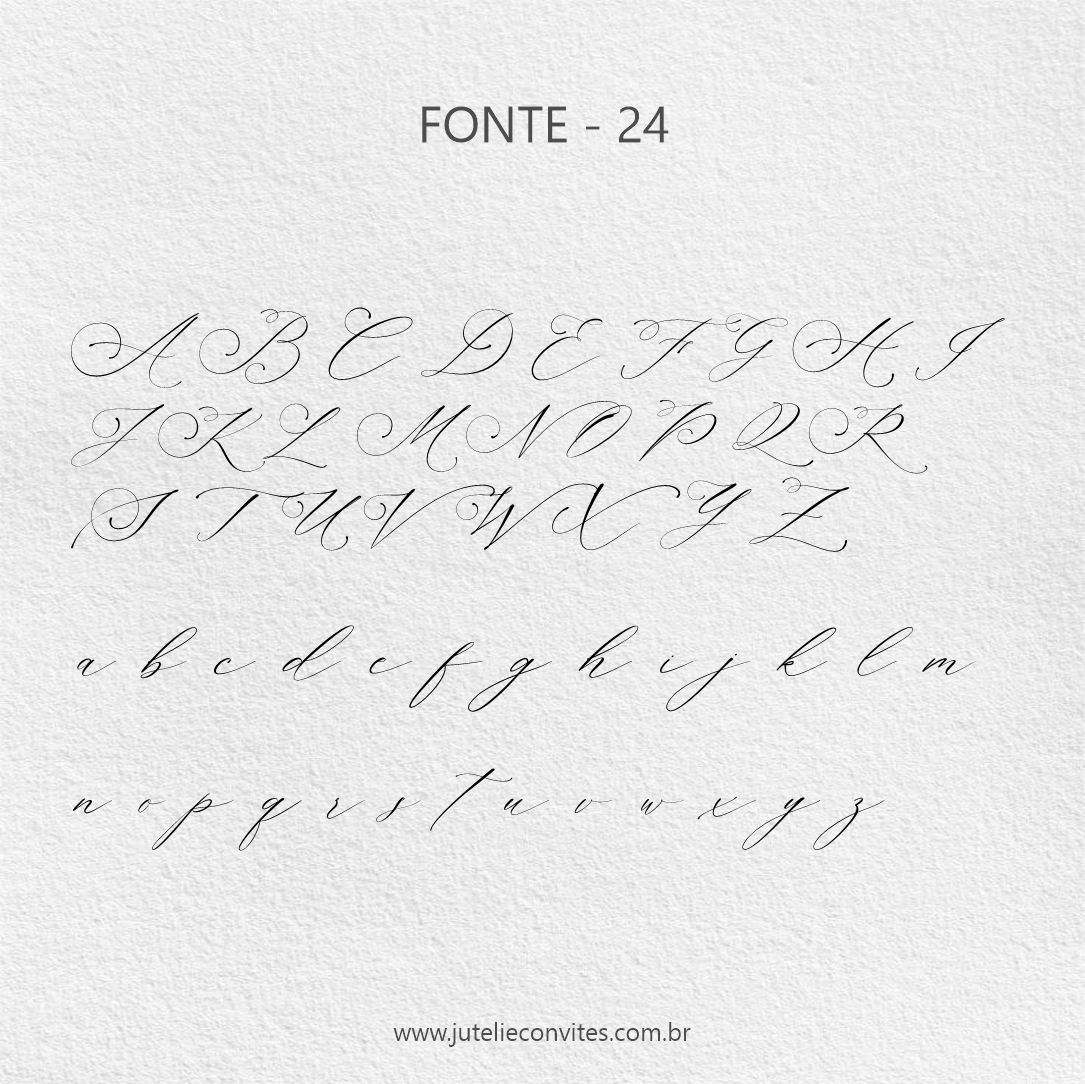 FONTE - 24
A B C D E F G H I
J K L M N O P Q R
S T U V W X Y Z
a b c d e f g h i j k l m
n o p q r s t u v w x y z
www.jutelieconvites.com.br